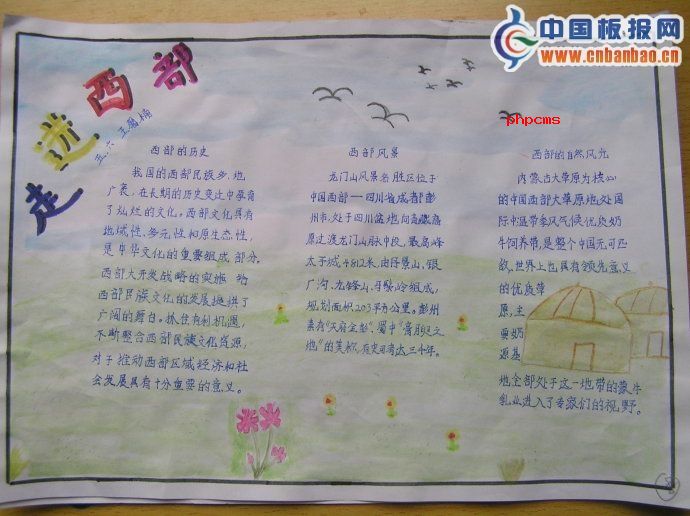 中国板报网
www.cnbanbao.cn
phpcms
走进西部
五.六
西部的历史
我国的西部民族多,地
广袤,在长期的历史变迁中孕育
了灿烂的文化。西部文化具有
地域性、多元性和原生态性,
是中华文化的重要组成部分。
西部大开发战略的实施 给
西部民族文化的发展提供了
广阔的舞台。抓住有利机遇,
不断整合西部民族文化资源,
对于推动西部区域经济和社
会发展具有十分重要的意义。
西部风景
龙门山风景名胜区位于
中国西部—四川省成都彭
州市,处于四川盆地向青藏高
原过渡龙门山脉中段,最高峰
太子城,4812米,由丹景山、银
厂沟、九锋山、组成,
规划面积203平方公里。彭州
素有"天府金彭"、蜀中"膏腴之
地"的美称,有史可考达三千年。
西部的自然风光
内蒙古大草原为核心
的中国西部大草原地处国
际中温带季风气候优良奶
牛饲养带,是整个中国无可匹
敌,世界上也具有领先意义
的优质草
原,主
要奶
源基
地全部处于这一地带的蒙牛
乳业进入了专家们的视野。